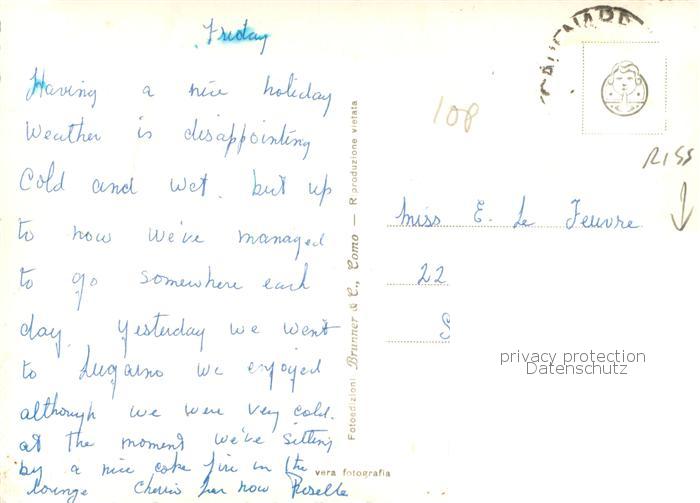 Friday
Having a nice holiday
Weather is disappointing
Cold and wet. but up
to now we've managed
to go somewhere each
day. Yesterday we went
to Lugarno we enjoyed
although we were very cold.
at the moment we've sitting
by a nice coke fire in the
lounge Cherio for now Roselle
Fotoedizioni Brunner & C., Como — Riproduzione vietata
vera fotografia
108
RISS
Miss E. Le Feuvre
22
S
privacy protection
Datenschutz